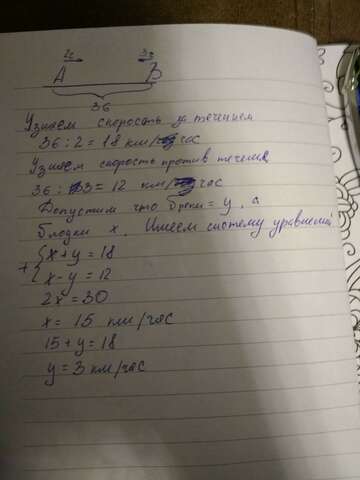 2ч 3ч
A B
36
Узнаем скорость за течением
36 : 2 = 18 км/час
Узнаем скорость против течения
36 : 3 = 12 км/час
Допустим что υреки = y, а
υлодки x. Имеем систему уравнений
+ { x + y = 18
x - y = 12
2x = 30
x = 15 км/час
15 + y = 18
y = 3 км/час